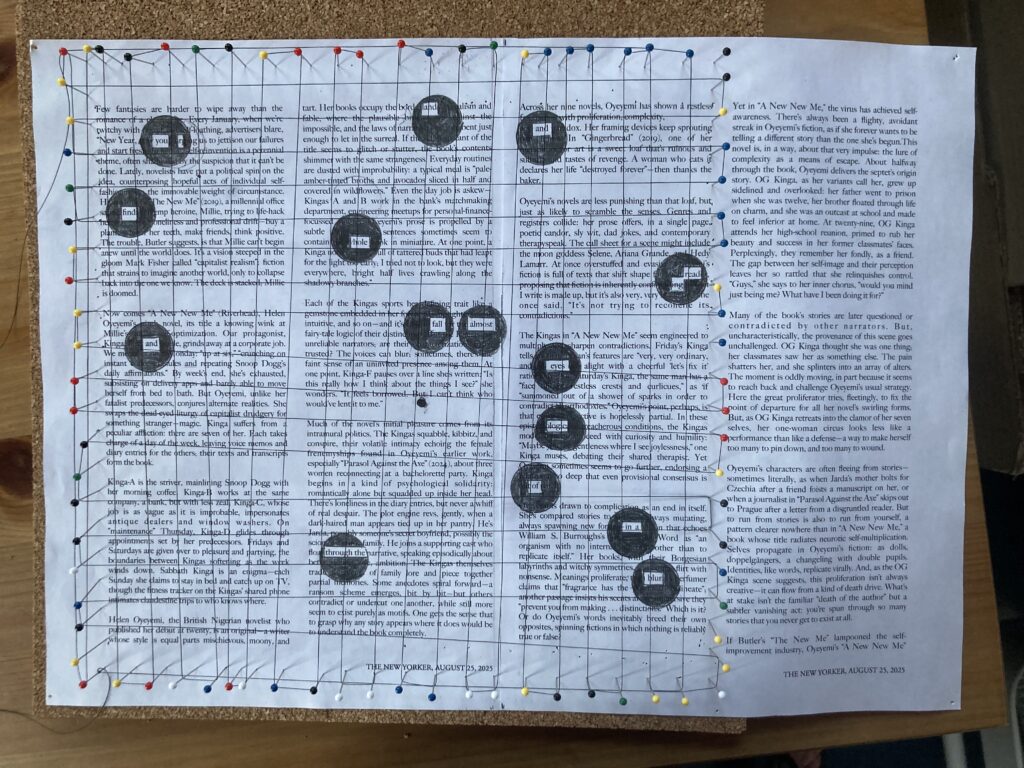 Few fantasies are harder to wipe away than the
romance of a Every January, when we're
twitchy with advertisers blare,
"New Year, you to jettison our failures
and start reinvention is a perennial
theme, often by the suspicion that it can't be
done. Lately, novelists have put a political spin on the
idea, counterposing hopeful acts of individual self-
the immovable weight of circumstance.
find The New Me" (2019), a millennial office
heroine, Millie, trying to life-hack
and professional drift—buy a
her teeth, make friends, think positive.
The trouble, Butler suggests, is that Millie can't begin
anew until the world does. It's a vision steeped in the
gloom Mark Fisher called "capitalist realism": fiction
that strains to imagine another world, only to collapse
back into the one we know. The deck is stacked; Millie
is doomed.
Now comes "A New New Me" (Riverhead), Helen
novel, its title a knowing wink at
Millie's optimization. Our protagonist,
and grinds away at a corporate job.
We "up at six" "crunching on
instant and repeating Snoop Dogg's
daily affirmations." By week's end, she's exhausted,
subsisting on delivery apps and barely able to move
herself from bed to bath. But Oyeyemi, unlike her
fatalist predecessors, conjures alternate realities. She
swaps the dead-eyed liturgy of capitalist drudgery for
something stranger—magic. Kinga suffers from a
peculiar affliction: there are seven of her. Each takes
charge of a day of the week, leaving voice memos and
diary entries for the others; their texts and transcripts
form the book.
Kinga-A is the striver, mainlining Snoop Dogg with
her morning coffee. Kinga-B works at the same
company, a bank, but with less zeal. Kinga-C, whose
job is as vague as it is improbable, impersonates
antique dealers and window washers. On
"maintenance" Thursday, Kinga-D glides through
appointments set by her predecessors. Fridays and
Saturdays are given over to pleasure and partying, the
boundaries between Kingas softening as the week
winds down. Sabbath Kinga is an enigma—each
Sunday she claims to stay in bed and catch up on TV,
though the fitness tracker on the Kingas' shared phone
intimates clandestine trips to who knows where.
Helen Oyeyemi, the British Nigerian novelist who
published her début at twenty, is an original—a writer
whose style is equal parts mischievous, moony, and
tart. Her books occupy the and
fable, where the plausible against the
impossible, and the laws of bent just
enough to let in the surreal. If the of the
title seems to glitch or stutter, the book's contents
shimmer with the same strangeness. Everyday routines
are dusted with improbability: a typical meal is "pale
amber-tinted broths and avocados sliced in half and
covered in wildflowers." Even the day job is askew—
Kingas A and B work in the bank's matchmaking
department, engineering meetups for personal-finance-
focused Oyeyemi's prose is propelled by a
subtle sentences sometimes seem to
contain whole in miniature. At one point, a
Kinga full of tattered buds that had leapt
for the light too early. I tried not to look, but they were
everywhere, bright half lives crawling along the
shadowy branches."
Each of the Kingas sports her trait like a
gemstone embedded in her
intuitive, and so on—and fall almost
fairy-tale logic of their
unreliable narrators: are their
trusted? The voices can blur; sometimes, there's a
faint sense of an uninvited presence among them. At
one point, Kinga-F pauses over a line she's written: "Is
this really how I think about the things I see?" she
wonders. "It feels borrowed. But I can't think who
would've lent it to me."
Much of the novel's initial pleasure comes from its
intramural politics. The Kingas squabble, kibbitz, and
conspire, their volatile intimacy echoing the female
frenemyships found in Oyeyemi's earlier work,
especially "Parasol Against the Axe" (2024), about three
women reconnecting at a bachelorette party. Kinga
begins in a kind of psychological solidarity:
romantically alone but squadded up inside her head.
There's loneliness in the diary entries, but never a whiff
of real despair. The plot engine revs, gently, when a
dark-haired man appears tied up in her pantry. He's
Jarda, someone's secret boyfriend, possibly the
scion family. He joins a supporting cast who
through the narrative, speaking episodically about
ambition. The Kingas themselves
of family lore and piece together
partial Some anecdotes spiral forward—a
ransom scheme emerges, bit by bit—but others
contradict or undercut one another, while still more
seem to exist purely as motifs. One gets the sense that
to grasp why any story appears where it does would be
to understand the book completely.
THE NEW YORKER, AUGUST 25, 2025
Across her nine novels, Oyeyemi has shown a restless
with proliferation, complexity,
and Her framing devices keep sprouting
In "Gingerbread" (2019), one of her
art is a sweet loaf that's ruinous and
tastes of revenge. A woman who eats it
declares her life "destroyed forever"—then thanks the
baker.
Oyeyemi's novels are less punishing than that loaf, but
just as likely to scramble the senses. Genres and
registers collide: her prose offers, in a single page,
poetic candor, sly wit, dad jokes, and contemporary
therapyspeak. The call sheet for a scene might include
the moon goddess Selene, Ariana Grande, Hedy
Lamarr. At once overstuffed and read
fiction is full of texts that shift shape
proposing that fiction is inherently
I write is made up, but it's also very, very
once said. "It's not trying to reconcile its
contradictions."
The Kingas in "A New New Me" seem engineered to
multiply sharpen contradictions. Friday's Kinga
tells eyes features are "very, very ordinary,
and alight with a cheerful let's fix it'
Saturday's Kinga, the same man has a
restless crests and curlicues," as if
"summoned out of a shower of sparks in order to
Oyeyemi's point, perhaps, is
that is hopelessly partial. In these
treacherous conditions, the Kingas
with curiosity and humility:
"Maybe where I see joylessness," one
Kinga muses, debating their shared therapist. Yet
sometimes seems to go further, endorsing a
so deep that even provisional consensus is
out of
is drawn to complexity as an end in itself.
She's compared stories to always mutating,
always spawning new in a that echoes
William S. Burroughs's Word is "an
organism with no other than to
replicate itself." Her Borgesian
labyrinths and witty symmetries, flirt with
nonsense. Meanings proliferate: perfumer
claims that "fragrance has the
another passage insists his scents blur they
"prevent you from making . . . distinctions." Which is it?
Or do Oyeyemi's words inevitably breed their own
opposites, spinning fictions in which nothing is reliably
true or false?
Yet in "A New New Me," the virus has achieved self-
awareness. There's always been a flighty, avoidant
streak in Oyeyemi's fiction, as if she forever wants to be
telling a different story than the one she's begun. This
novel is, in a way, about that very impulse: the lure of
complexity as a means of escape. About halfway
through the book, Oyeyemi delivers the septet's origin
story. OG Kinga, as her variants call her, grew up
sidelined and overlooked: her father went to prison
when she was twelve, her brother floated through life
on charm, and she was an outcast at school and made
to feel inferior at home. At twenty-nine, OG Kinga
attends her high-school reunion, primed to rub her
beauty and success in her former classmates' faces.
Perplexingly, they remember her fondly, as a friend.
The gap between her self-image and their perception
leaves her so rattled that she relinquishes control.
"Guys," she says to her inner chorus, "would you mind
just being me? What have I been doing it for?"
Many of the book's stories are later questioned or
contradicted by other narrators. But,
uncharacteristically, the provenance of this scene goes
unchallenged. OG Kinga thought she was one thing,
her classmates saw her as something else. The pain
shatters her, and she splinters into an array of alters.
The moment is oddly moving, in part because it seems
to reach back and challenge Oyeyemi's usual strategy.
Here the great proliferator tries, fleetingly, to fix the
point of departure for all her novel's swirling forms.
But, as OG Kinga retreats into the clamor of her seven
selves, her one-woman circus looks less like a
performance than like a defense—a way to make herself
too many to pin down, and too many to wound.
Oyeyemi's characters are often fleeing from stories—
sometimes literally, as when Jarda's mother bolts for
Czechia after a friend foists a manuscript on her, or
when a journalist in "Parasol Against the Axe" skips out
to Prague after a letter from a disgruntled reader. But
to run from stories is also to run from yourself, a
pattern clearer nowhere than in "A New New Me," a
book whose title radiates neurotic self-multiplication.
Selves propagate in Oyeyemi's fiction: as dolls,
doppelgängers, a changeling with double pupils.
Identities, like words, replicate virally. And, as the OG
Kinga scene suggests, this proliferation isn't always
creative—it can flow from a kind of death drive. What's
at stake isn't the familiar "death of the author" but a
subtler vanishing act: you're spun through so many
stories that you never get to exist at all.
If Butler's "The New Me" lampooned the self-
improvement industry, Oyeyemi's "A New New Me"
THE NEW YORKER, AUGUST 25, 2025